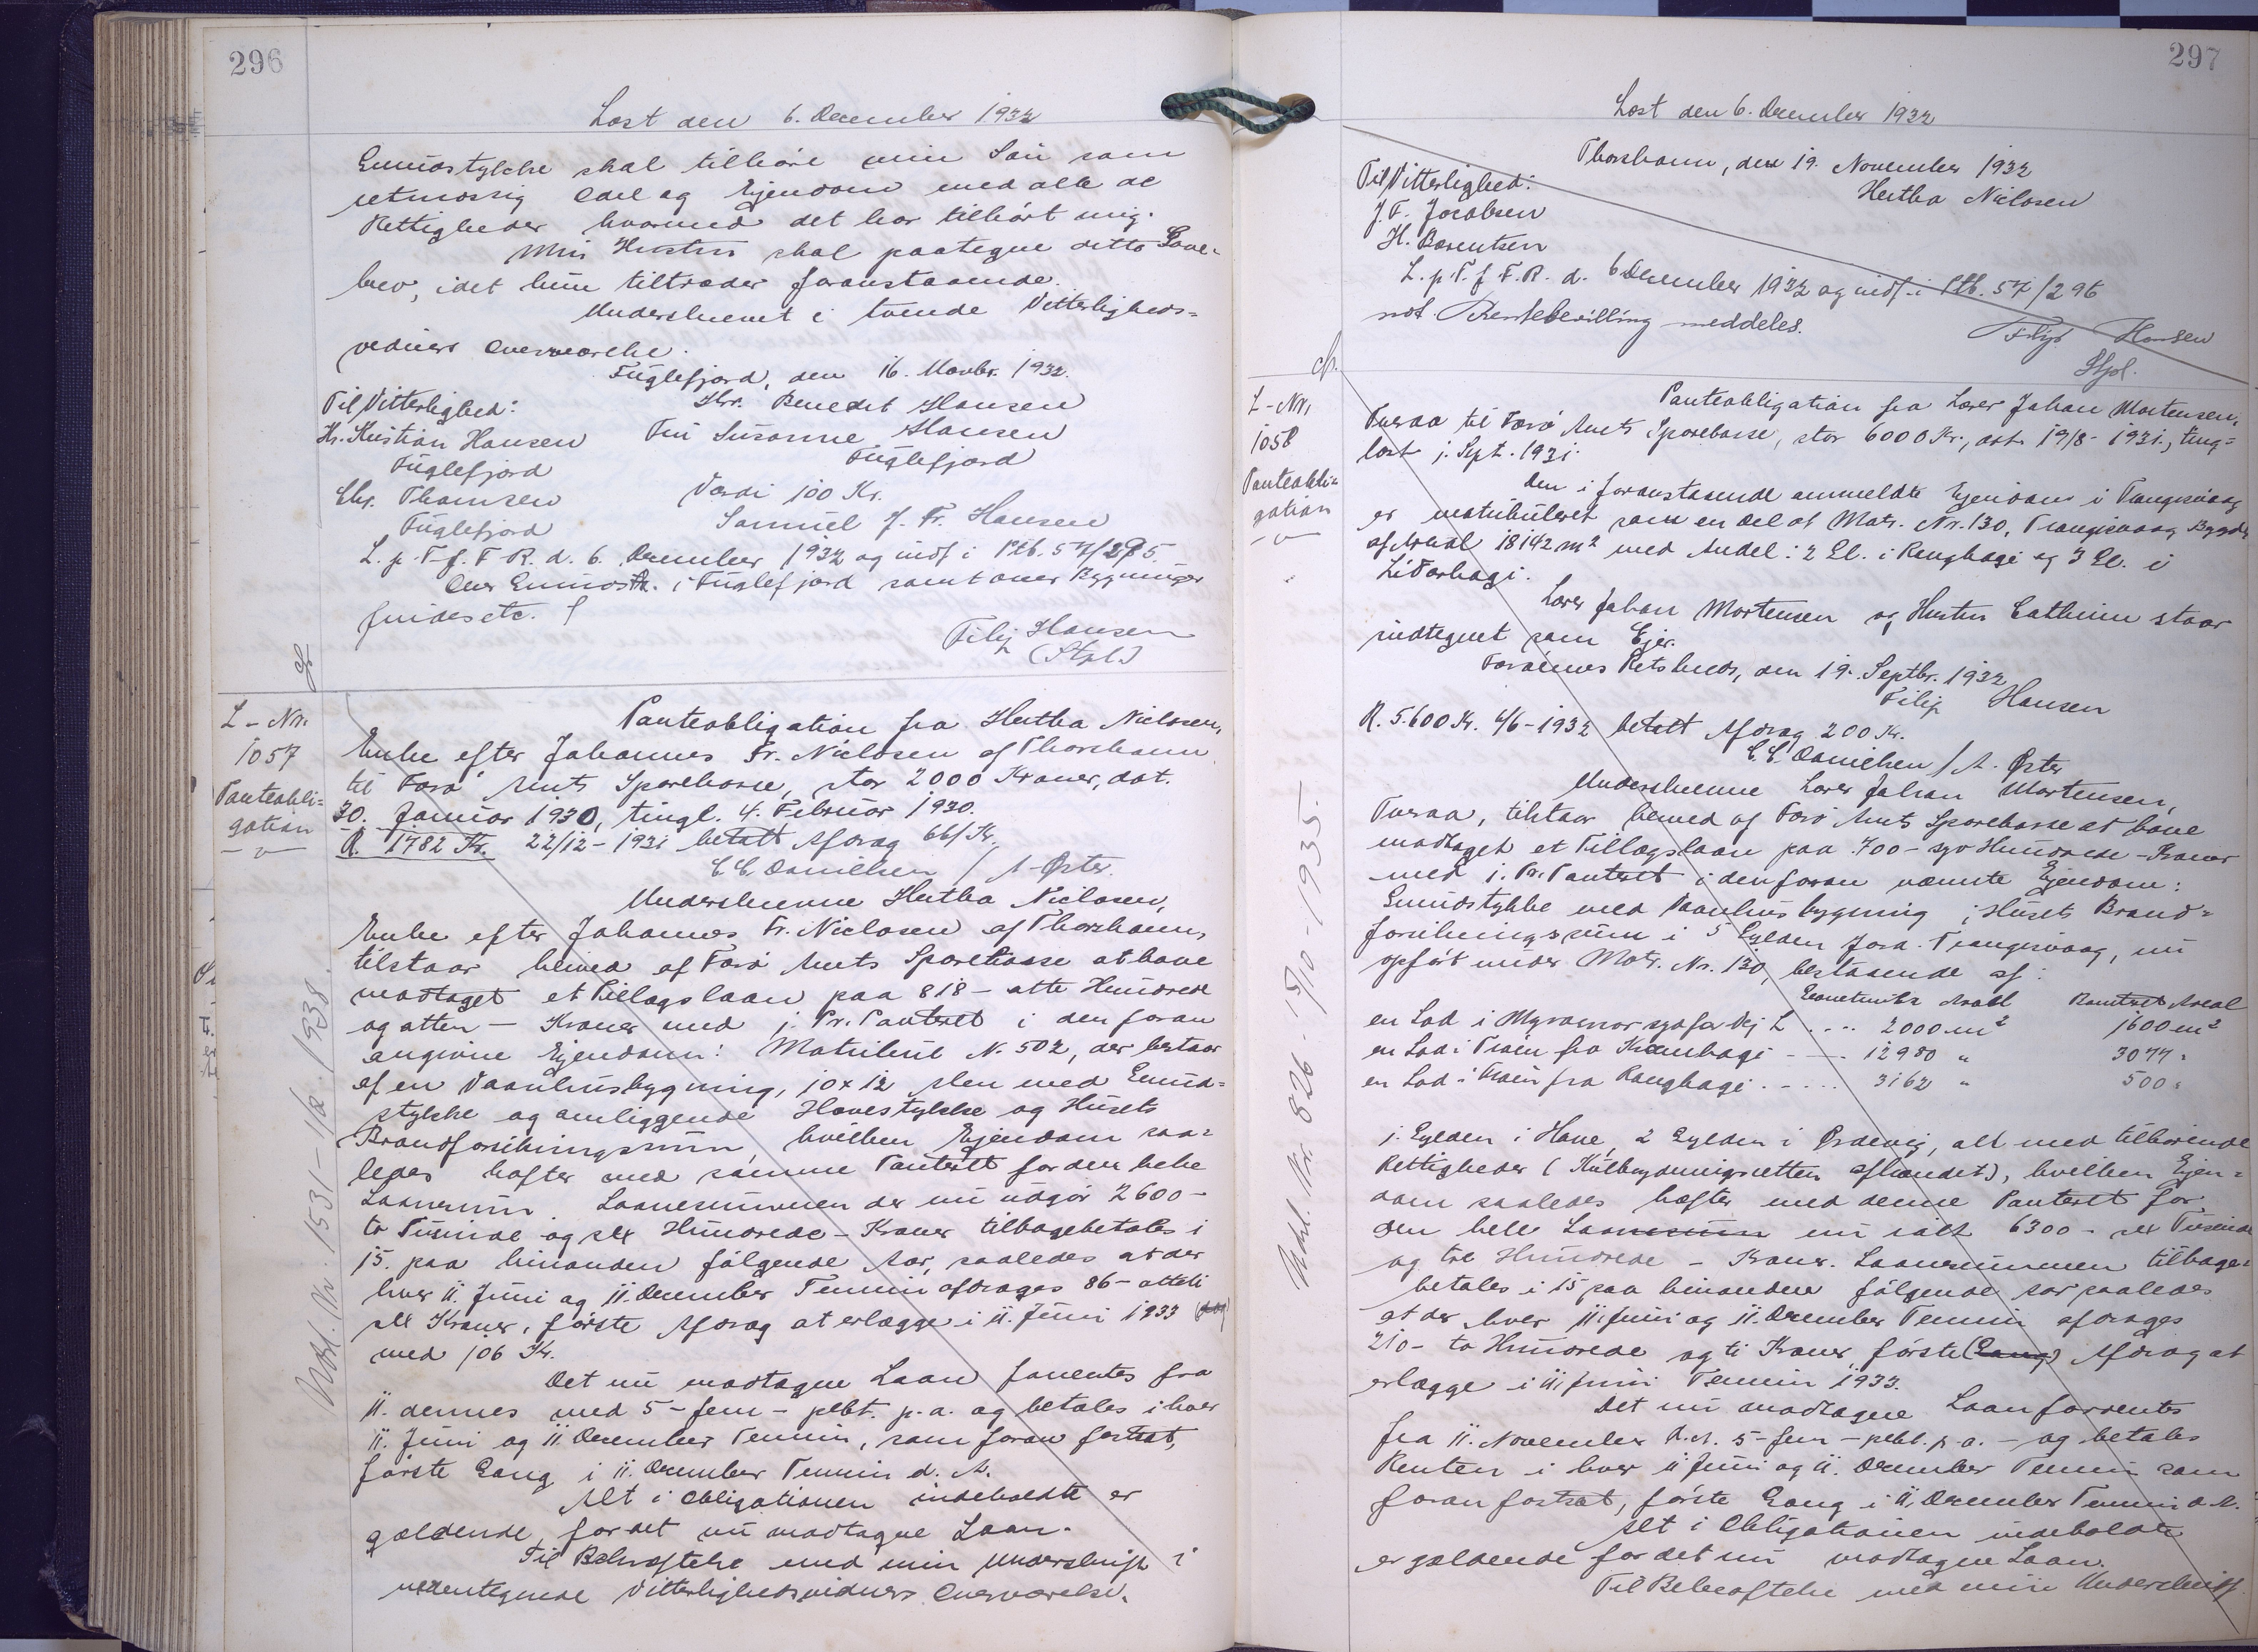 296
Læst den 6. December 1932
Grundstykke skal tilhøre min Søn som
retmæssig Odel og Ejendom med alle de
Rettigheder hvormed det har tilhørt mig.
Min Hustru skal paategne dette Gave-
brev, idet hun tiltræder foranstaaende.
Underskrevet i tvende Vitterligheds-
vidners Overværelse.
Fuglefjord, den 16. Novbr. 1932.
Til Vitterlighed: Hr. Benedikt Hansen
Hr. Kristian Hansen Fru Susanne Hansen
Fuglefjord Fuglefjord
Chr. Thomsen Værdi 100 Kr.
Fuglefjord Samuel J. Fr. Hansen
L. p. T. f. F. R. d. 6. December 1932 og indf. i Ptb. 57/295.
Over Grundstk. i Fuglefjord samt over Bygninger
findes etc.
Filip Hansen
(Stpl.)
L-Nr.
1057
Panteobli-
gation
Panteobligation fra Hertha Niclasen,
Enke efter Johannes Fr. Niclasen af Thorshavn
til Færø Amts Sparekasse, stor 2000 Kroner, dat.
30. Januar 1930, tingl. 4. Februar 1930.
R. 1782 Kr. 22/12-1931 betalt Afdrag 66/ Kr.
C. C. Danielsen / A. Øster.
Underskrevne Hertha Niclasen,
Enke efter Johannes Fr. Niclasen af Thorshavn,
tilstaar herved af Færø Amts Sparekasse at have
modtaget et Tillægslaan paa 818 - otte Hundrede
og atten - Kroner med 1. Pr. Panteret i den foran
angivne Ejendom: Matrikul N. 502, der bestaar
af en Vaanhusbygning, 10 x 12 Alen med Grund-
stykke og omliggende Havestykke og Husets
Brandforsikringssum, hvilken Ejendom saa-
ledes hæfter med samme Panteret for den hele
Laanesum. Laanesummen der nu udgør 2600 -
to Tusinde og sex Hundrede - Kroner tilbagebetales i
15. paa hinanden følgende Aar, saaledes at der
hver 11. Juni og 11. December Termin afdrages 86 - otteti
sex Kroner, første Afdrag at erlægge i 11. Juni 1933
med 106 Kr.
Det nu modtagne Laan forrentes fra
11. dennes med 5 - fem - pCt. p. a. og betales i hver
11. Juni og 11 December Termin, som foran fastsat,
første Gang i 11. December Termin d. A.
Alt i Obligationen indeholdte er
gældende for det nu modtagne Laan.
Til Bekræftelse med min Underskrift i
undertegnede Vitterlighedsvidners Overværelse.
Udsl. Nr. 1531 - 1938.
297
Læst den 6. December 1932
Thorshavn, den 19. November 1932
Til Vitterlighed: Hertha Niclasen
J. F. Jacobsen
H. Berentsen
L. p. T. f. F. R. d. 6 December 1932 og indf. i Ptb. 57/296
not. Rentebevilling meddeles.
Filip Hansen
Stpl.
L-Nr.
1058
Panteobli-
gation
Panteobligation fra Lærer Johan Mortensen,
Tveraa til Færø Amts Sparekasse, stor 6000 Kr., dat. 19/8-1931, ting-
læst 1. Sept. 1931.
Den i foranstaaende ommeldte Ejendom i Trangisvaag
er matrikuleret som en Del af Matr. Nr. 130, Trangisvaag Bygd
af Areal 18142 m² med Andel: 2 Gl. i Ranghagi og 3 Gl. i
Lidarhagi.
Lærer Johan Mortensen og Hustru Cathrine staar
indtegnet som Ejer.
Færøernes Retskreds, den 19. Septbr. 1932
Filip Hansen
R. 5.600 Kr. 4/6-1932 betalt Afdrag 200 Kr.
C. C. Danielsen / A. Øster
Underskrevne Lærer Johan Mortensen,
Tveraa, tilstaar herved af Færø Amts Sparekasse at have
modtaget et Tillægslaan paa 700 - syv Hundrede - Kroner
med 1. Pr. Panteret i den foran nævnte Ejendom:
Grundstykke med Vaanhusbygning i Husets Brand-
forsikringssum i 5 Gylden Jord. Trangisvaag, nu
opført under Matr. Nr. 130, bestaaende af:
Geometriske Areal Boniteret Areal
en Lod i Myrarnar sydfor Vej L .... 2000 m² 1600 m²
en Lod i Traðir fra Kransbagi - .... 12980 " 3077 "
en Lod i Traðir fra Ranghagi ..... 3162 " 500 "
1. Gylden i Hove, 2 Gylden i Ørdevig, alt med tilhørende
Rettigheder (Kulbrydningsretten afhændet), hvilken Ejen-
dom saaledes hæfter med denne Panteret for
den hele Laanesum nu ialt 6300 - sex Tusinde
og tre Hundrede - Kroner. Laanesummen tilbage-
betales i 15 paa hinanden følgende Aar saaledes
at der hver 11. Juni og 11. December Termin afdrages
210 - to Hundrede og ti Kroner første (Gang) Afdrag at
erlægge i 11. Juni Termin 1933.
Det nu modtagne Laan forrentes
fra 11. November d. A. 5 - fem - pCt. p. a. - og betales
Renten i hver 11 Juni og 11. December Termin som
foran fastsat, første Gang i 11. December Termin d. A.
Alt i Obligationen indeholdte
er gældende for det nu modtagne Laan.
Til Bekræftelse med min Underskrift
Udsl. Nr. 826 - 5/10 - 1935.